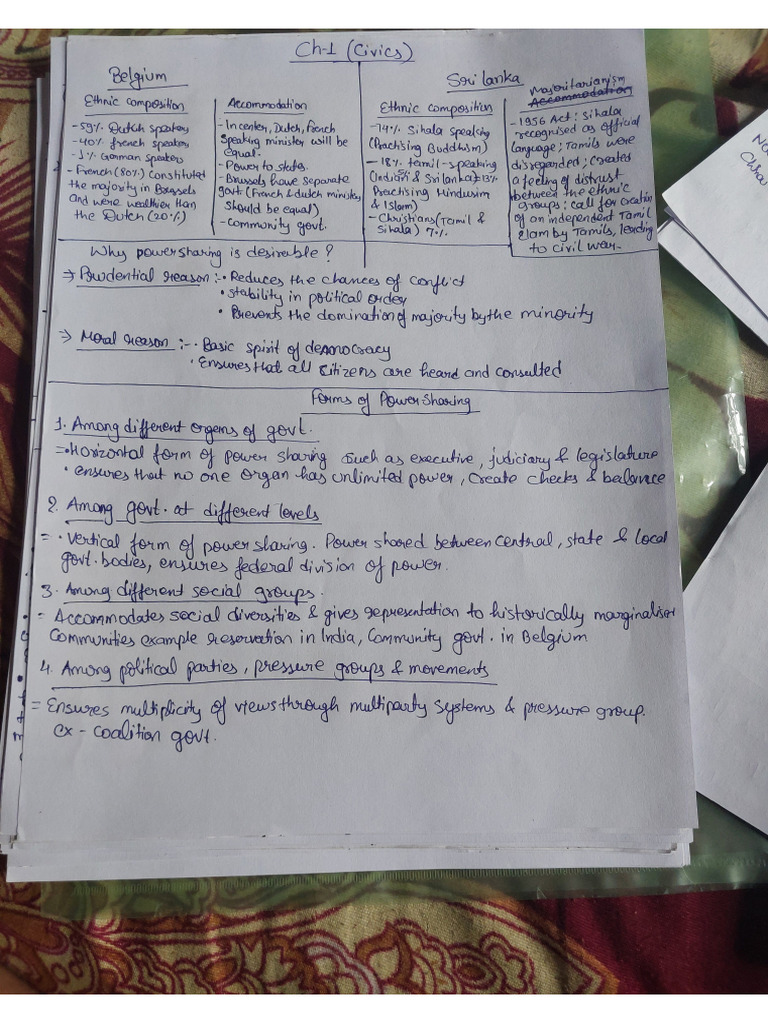 Ch-1 (Civics)
Belgium
Ethnic composition
- 59% Dutch speakers
- 40% french speakers
- 1% German speakers
- French (80%) constituted
the majority in Brussels
and were wealthier than
the Dutch (20%)
Accommodation
- In center, Dutch, French
speaking minister will be
equal.
- Power to states.
- Brussels have separate
govt. (French & dutch minister
should be equal)
- Community govt.
Sri lanka
Ethnic composition
- 74% Sihala speaking
(Practising Buddhism)
- 18% tamil-speaking
(Indian 5% & Sri lanka 13%
Practising Hinduism
& Islam)
- Christians (Tamil &
Sihala) 7%
Majoritarianism
Accommodation
- 1956 Act: Sihala
recognised as official
language; Tamils were
disregarded; Creates
a feeling of distrust
between the ethnic
groups; call for creation
of an independent Tamil
Elam by Tamils, leading
to civil war.
Why powersharing is desirable?
→ Prudential reason :- • Reduces the chances of conflict
• Stability in political order
• Prevents the domination of majority by the minority
→ Moral reason :- • Basic spirit of democracy
• Ensures that all citizens are heard and consulted
Forms of Power Sharing
1. Among different organs of govt.
= • Horizontal form of power sharing such as executive, judiciary & legislature
• ensures that no one organ has unlimited power, create checks & balance
2. Among govt. at different levels
= • Vertical form of power sharing. Power shared between central, state & local
govt. bodies, ensures federal division of power.
3. Among different social groups.
= Accommodates social diversities & gives representation to historically marginalised
communities example reservation in India, Community govt. in Belgium
4. Among political parties, pressure groups & movements
= Ensures multiplicity of views through multiparty systems & pressure group.
ex - coalition govt.